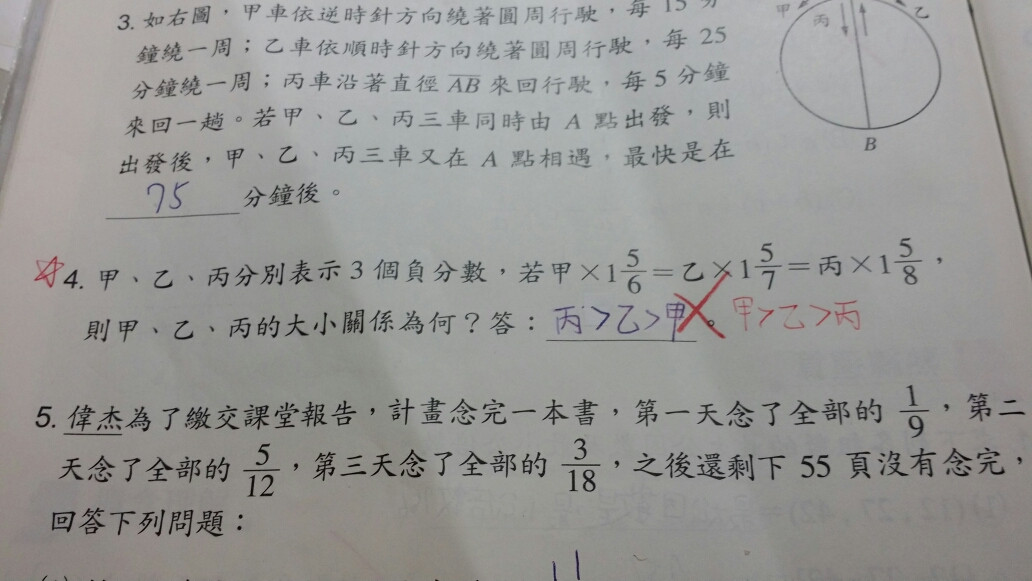 3. 如右圖，甲車依逆時針方向繞著圓周行駛，每 15 分
鐘繞一周；乙車依順時針方向繞著圓周行駛，每 25
分鐘繞一周；丙車沿著直徑 AB 來回行駛，每 5 分鐘
來回一趟。若甲、乙、丙三車同時由 A 點出發，則
出發後，甲、乙、丙三車又在 A 點相遇，最快是在
75 分鐘後。
甲 丙 乙
B
4. 甲、乙、丙分別表示 3 個負分數，若甲×1 5/6＝乙×1 5/7＝丙×1 5/8，
則甲、乙、丙的大小關係為何？答：丙>乙>甲。 甲>乙>丙
5. 偉杰為了繳交課堂報告，計畫念完一本書，第一天念了全部的 1/9，第二
天念了全部的 5/12，第三天念了全部的 3/18，之後還剩下 55 頁沒有念完，
回答下列問題：